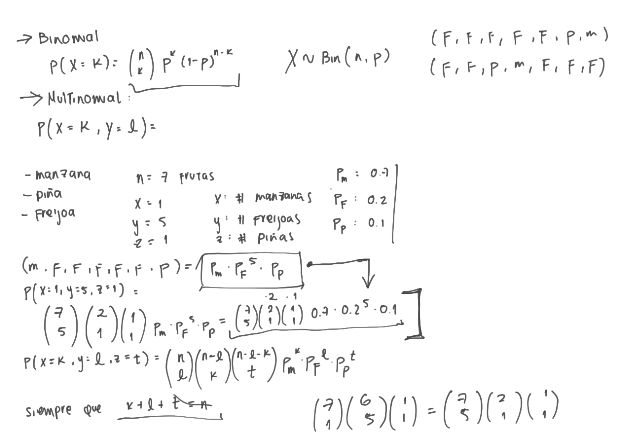 → Binomial
P(X = K) = (n K) p^K (1-p)^{n-K}
X ~ Bin (n, p)
(F, F, F, F, F, P, m)
(F, F, P, m, F, F, F)
→ Multinomial:
P(X = K, y = l) =
- manzana
- piña
- Freijoa
n = 7 frutas
X = 1
y = 5
z = 1
X: # manzanas
y: # Freijoas
z: # piñas
P_m : 0.7
P_F : 0.2
P_p : 0.1
(m, F, F, F, F, F, P) = P_m · P_F^5 · P_p
P(X=1, y=5, z=1) =
(7 5) (2 1) (1 1) P_m · P_F^5 · P_p = (7 5) (2 1) (1 1) 0.7 · 0.2^5 · 0.1
· 2 · 1
P(X=K, y=l, z=t) = (n l) (n-l K) (n-l-K t) P_m^K · P_F^l · P_p^t
siempre que K + l + t = n
(7 1) (6 5) (1 1) = (7 5) (2 1) (1 1)